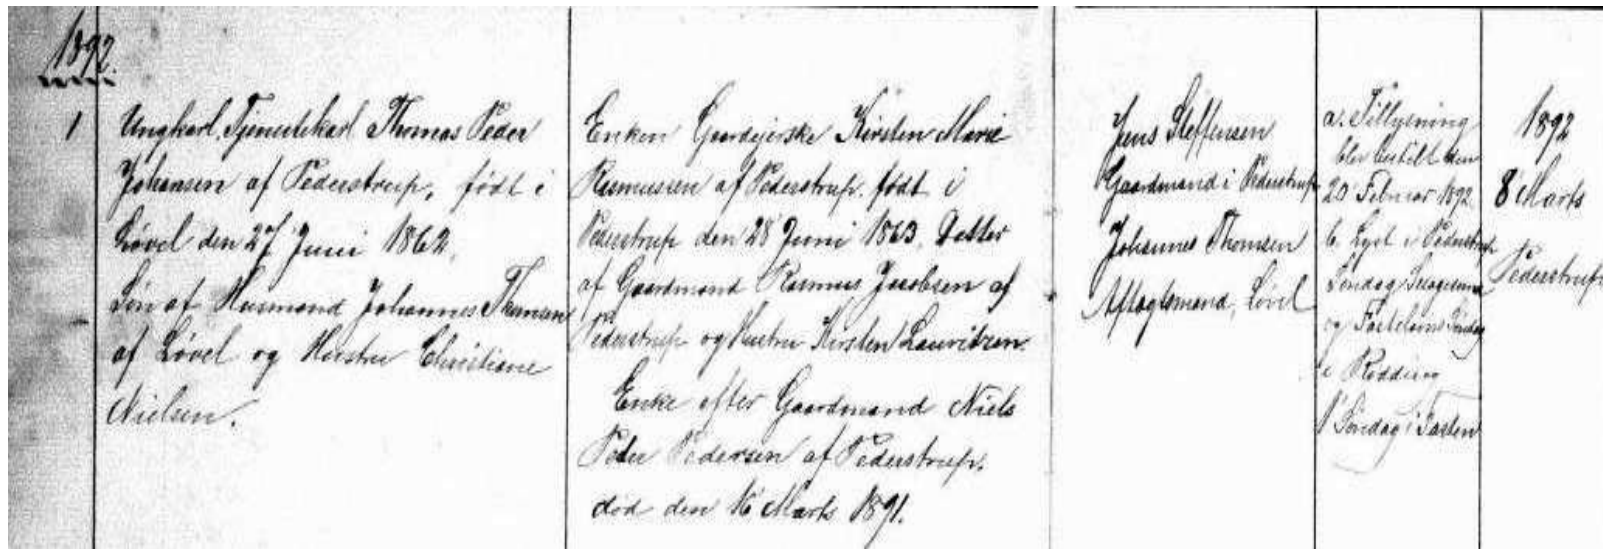 1892.
1
Ungkarl, Tjenestekarl Thomas Peder
Johansen af Pederstrup, født i
Løvel den 27' Juni 1862,
Søn af Husmand Johannes Thomsen
af Løvel og Hustru Christiane
Nielsen.
Enken Gaardejerske Kirsten Marie
Rasmussen af Pederstrup. født i
Pederstrup den 28' Juni 1863, Datter
af Gaardmand Rasmus Jacobsen af
Pederstrup og Hustru Kirsten Lauridsen.
Enke efter Gaardmand Niels
Peder Pedersen af Pederstrup.
død den 16' Marts 1891.
Jens Steffensen
Gaardmand i Pederstrup
Johannes Thomsen
Aftægtsmand, Løvel
a. Tillysning
blev bestilt den
20' Februar 1892.
b. Lyst i Pederstrup
Søndag
og Fastelavns Søndag
i Rødding
1' Søndag i Fasten
1892
8' Marts
Pederstrup